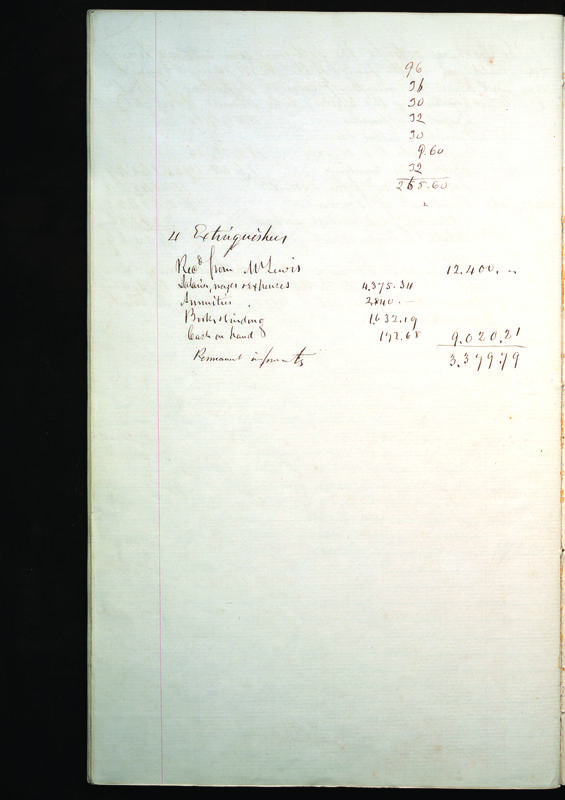 96
36
30
32
30
9.60
32
265.60
4 Extinguishers
Recd from Mr Lewis 12,400. --
Salaries, wages & expenses 4,375.34
Annuities 2,840. --
Books & binding 1,632.19
Cash on hand 172.68 9.020.21
Permanent improvmts 3.379.79